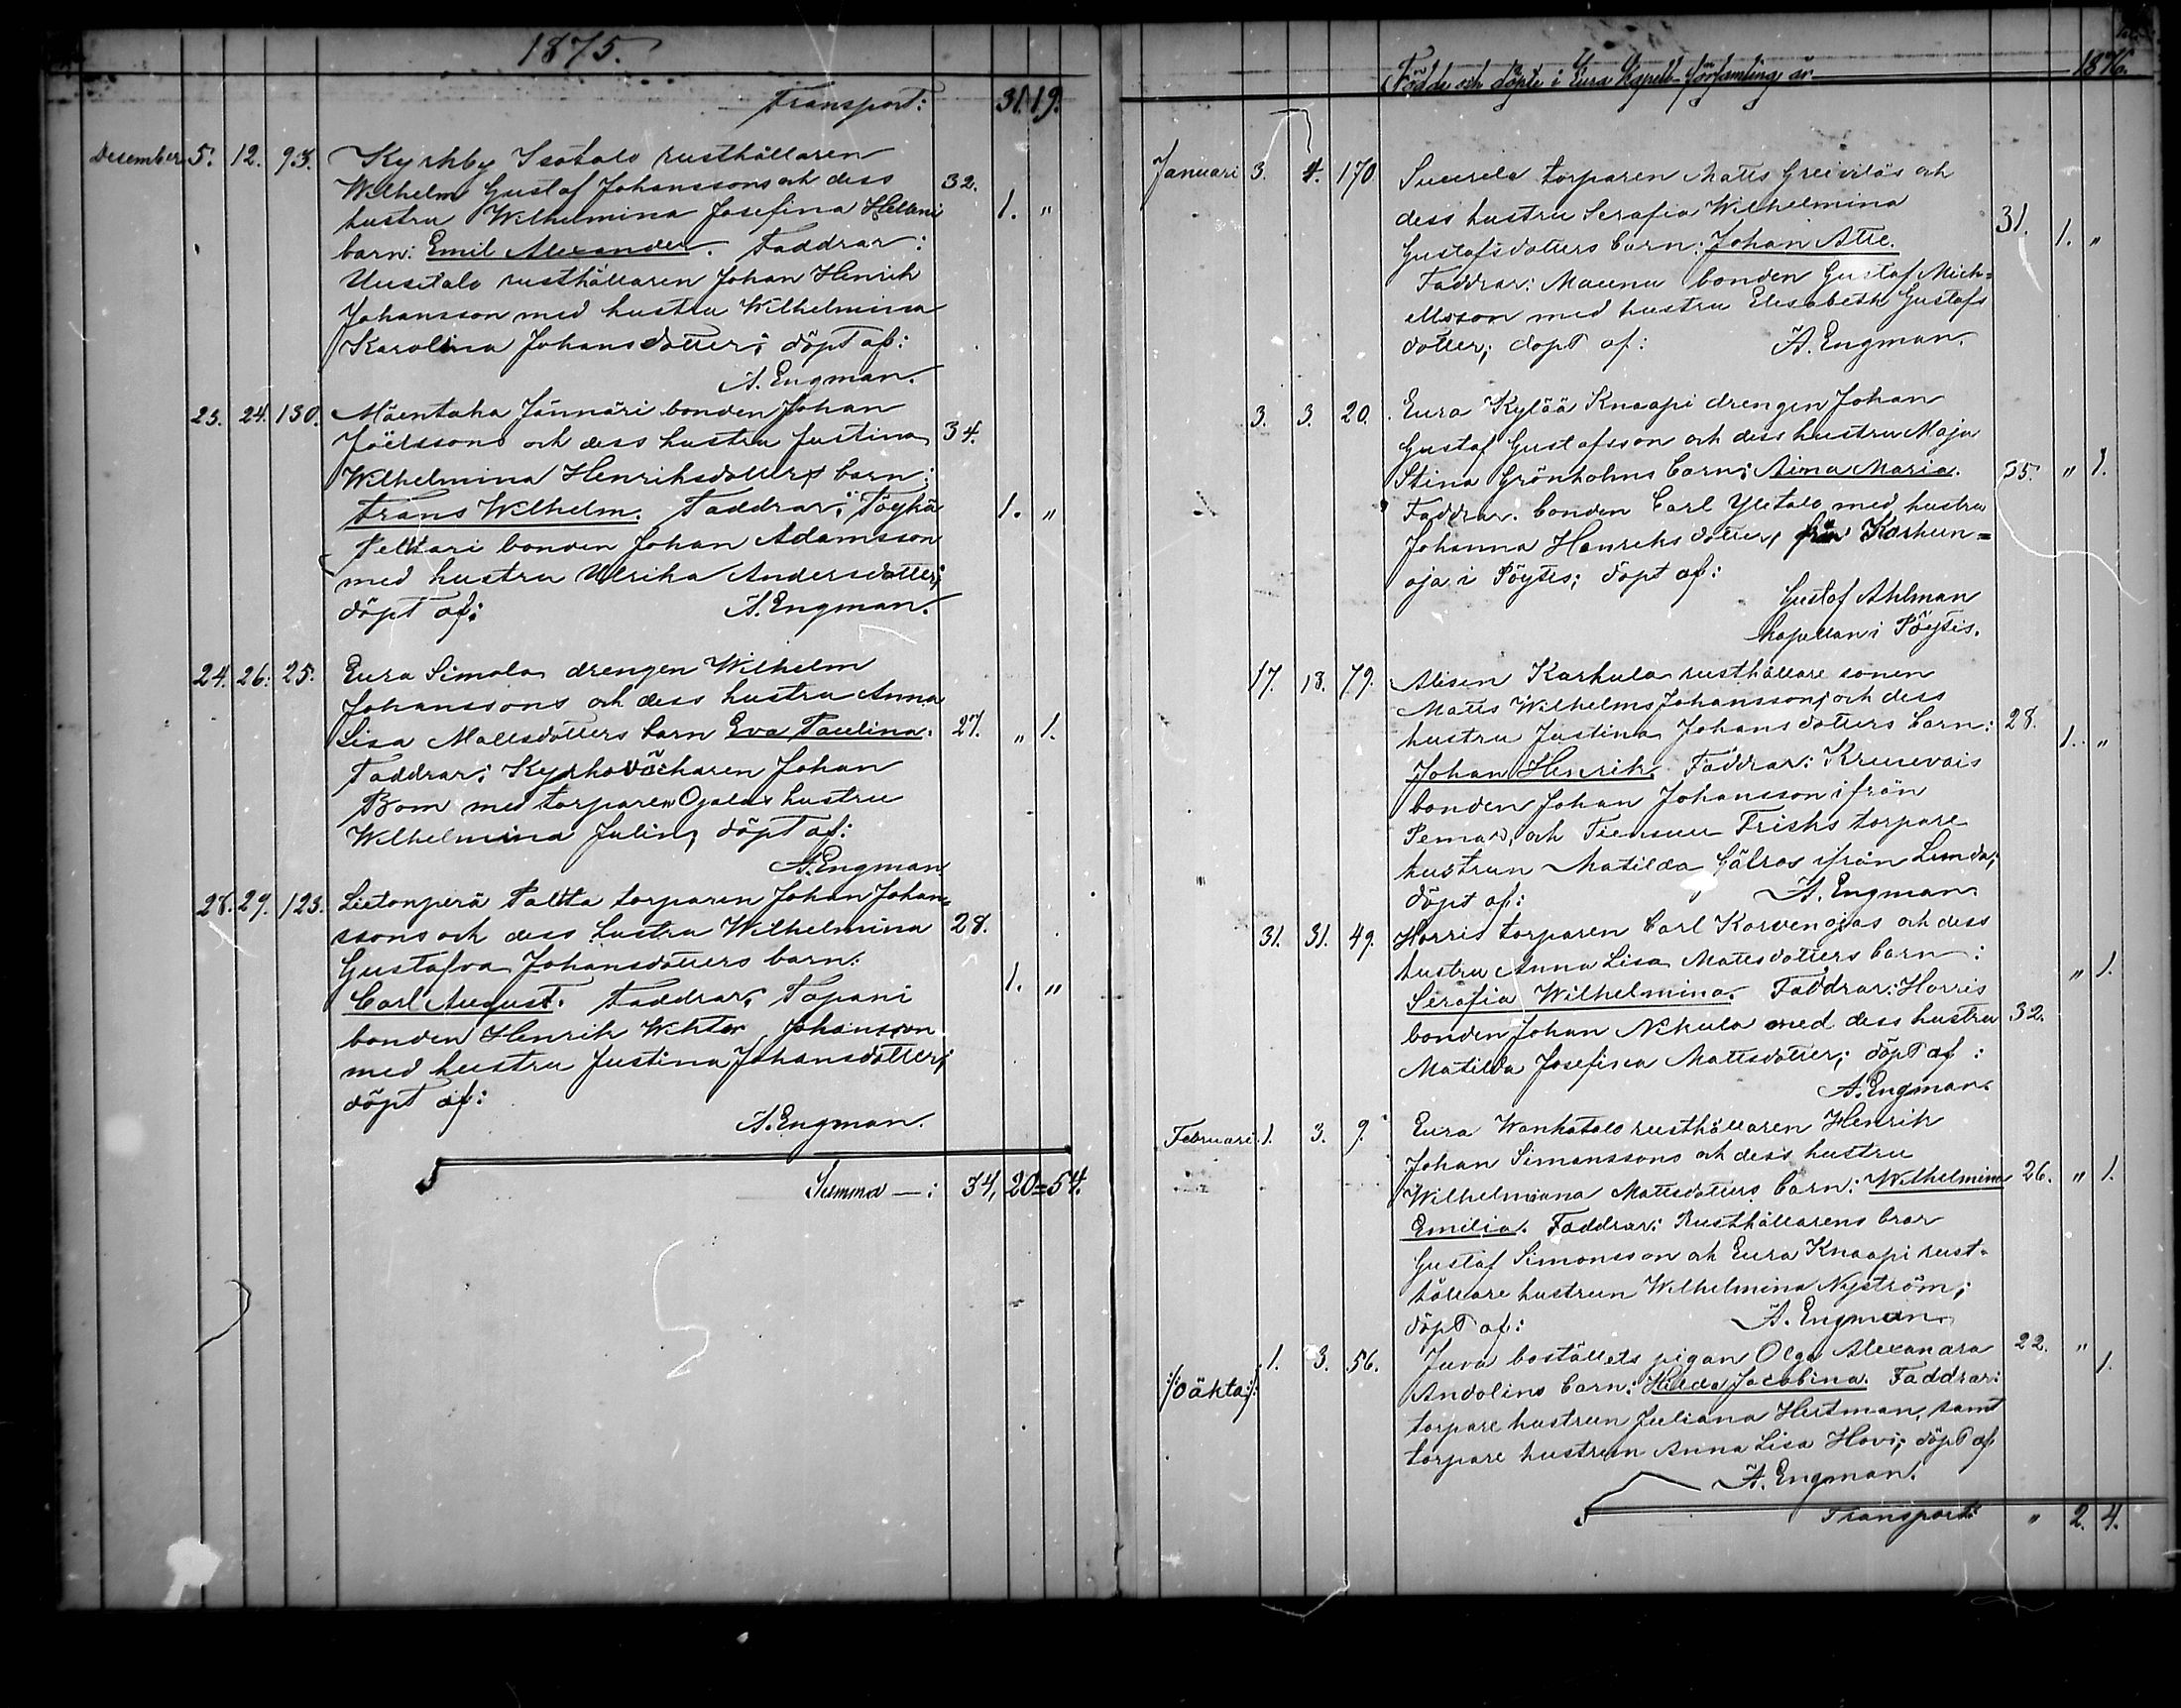 1875.
Transport: 31. 19.
December 5. 12. 93. Kyrkby Isotalo rusthållaren
Wilhelm Gustaf Johanssons och dess 32.
hustru Wilhelmina Josefina Helleni 1. "
barn: Emil Alexander. Faddrar:
Uusitalo rusthållaren Johan Henrik
Johansson med hustru Wilhelmina
Karolina Johansdotter; döpt af:
A. Engman.
23. 24. 130. Mäentaka Jännäri bonden Johan
Joërssons och dess hustru Justina 34.
Wilhelmina Henriksdotters barn:
Frans Wilhelm. Faddrar: Töykä 1. "
Pelttari bonden Johan Adamsson
med hustru Ulrika Andersdotter;
döpt af: A. Engman.
24. 26. 25. Eura Simola drengen Wilhelm
Johanssons och dess hustru Anna
Lisa Mattsdotters barn Eva Paulina. 27. " 1.
Faddrar: Kyrkoväktaren Johan
Bom med torparen Ojalas hustru
Wilhelmina Julin, döpt af:
A. Engman
28. 29. 123. Lietonperä Paltta torparen Johan Johan-
ssons och dess hustru Wilhelmina 28.
Gustafva Johansdotters barn:
Carl August. Faddrar: Tapani 1. "
bonden Henrik Wiktor Johansson
med hustru Justina Johansdotter;
döpt af:
A. Engman.
Summa —: 34, 20 = 54.
Födde och döpte i Eura Kapell-församling år 1876.
Januari 3. 4. 170. torparen Matts och
dess hustru Serafia Wilhelmina 31.
Gustafsdotters barn: Johan Atte. 1. "
Faddrar: Maunu bonden Gustaf Mich=
elsson med hustru Elisabeth Gustafs
dotter; döpt af: A. Engman.
3. 3. 20. Eura Kylää Knaapi drengen Johan
Gustaf Gustafsson och dess hustru Maja
Stina Grönholms barn: Aina Maria. 35. " 1.
Faddrar. bonden Carl Ylitalo med hustru
Johanna Henriksdotter, från Karhun=
oja i Pöytis; döpt af:
Gustaf Ahlman
kapellan i Pöytis.
17. 18. 79. Alisen Karhula rusthållare sonen
Matts Wilhelms Johanssons och dess
hustru Justina Johansdotters barn: 28. 1. "
Johan Henrik. Faddrar: Kruuvais
bonden Johan Johansson ifrån
Pemar, och Tiensuu Frisks torpare
hustrun Matilda ifrån Lundo;
döpt af: A. Engman.
31. 31. 49. Horris torparen Carl Korvenojas och dess
hustru Anna Lisa Mattsdotters barn: " 1.
Serafia Wilhelmina. Faddrar: Horris
bonden Johan Nikula med dess hustru 32.
Matilda Josefina Mattsdotter; döpt af:
A. Engman.
Februari 1. 3. 9. Eura Wanhatalo rusthållaren Henrik
Johan Simonssons och dess hustru
Wilhelmina Mattsdotters barn: Wilhelmina 26. " 1.
Emilia. Faddrar: Rusthållarens bror
Gustaf Simonsson och Eura Knaapi rust-
hållare hustrun Wilhelmina Nyström;
döpt af: A. Engman.
1. 3. 56. Juva boställets pigan Olga Alexandra 22. "
/:oäkta:/ Andolins barn: Hilda Jacobina. Faddrar: 1.
torpare hustrun Juliana Hertman, samt
torpare hustrun Anna Lisa Hovi; döpt af
A. Engman.
Transport: " 2. 4.